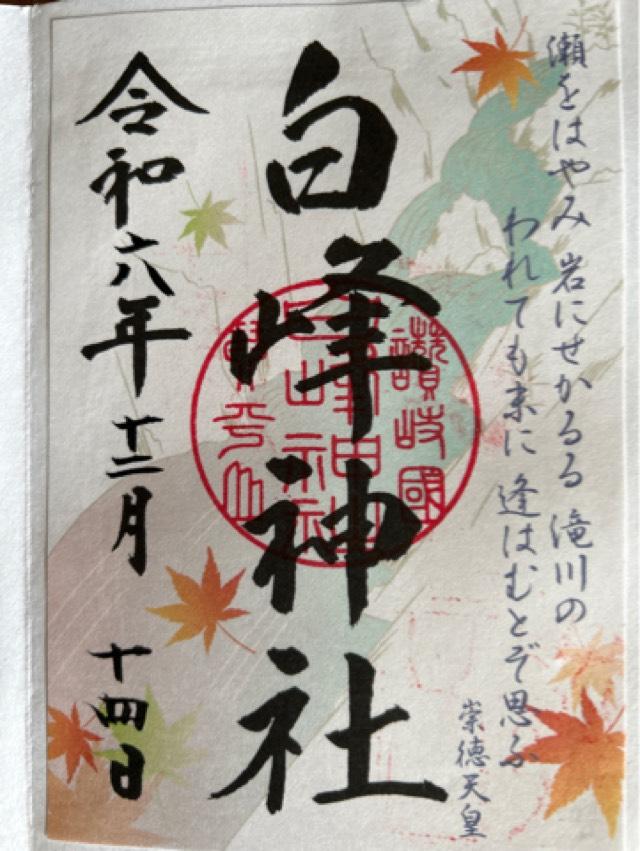 瀬をはやみ 岩にせかるる 滝川の
われても末に 逢はむとぞ思ふ
崇徳天皇
白峰神社
讃岐國
令和六年 十二月 十四日